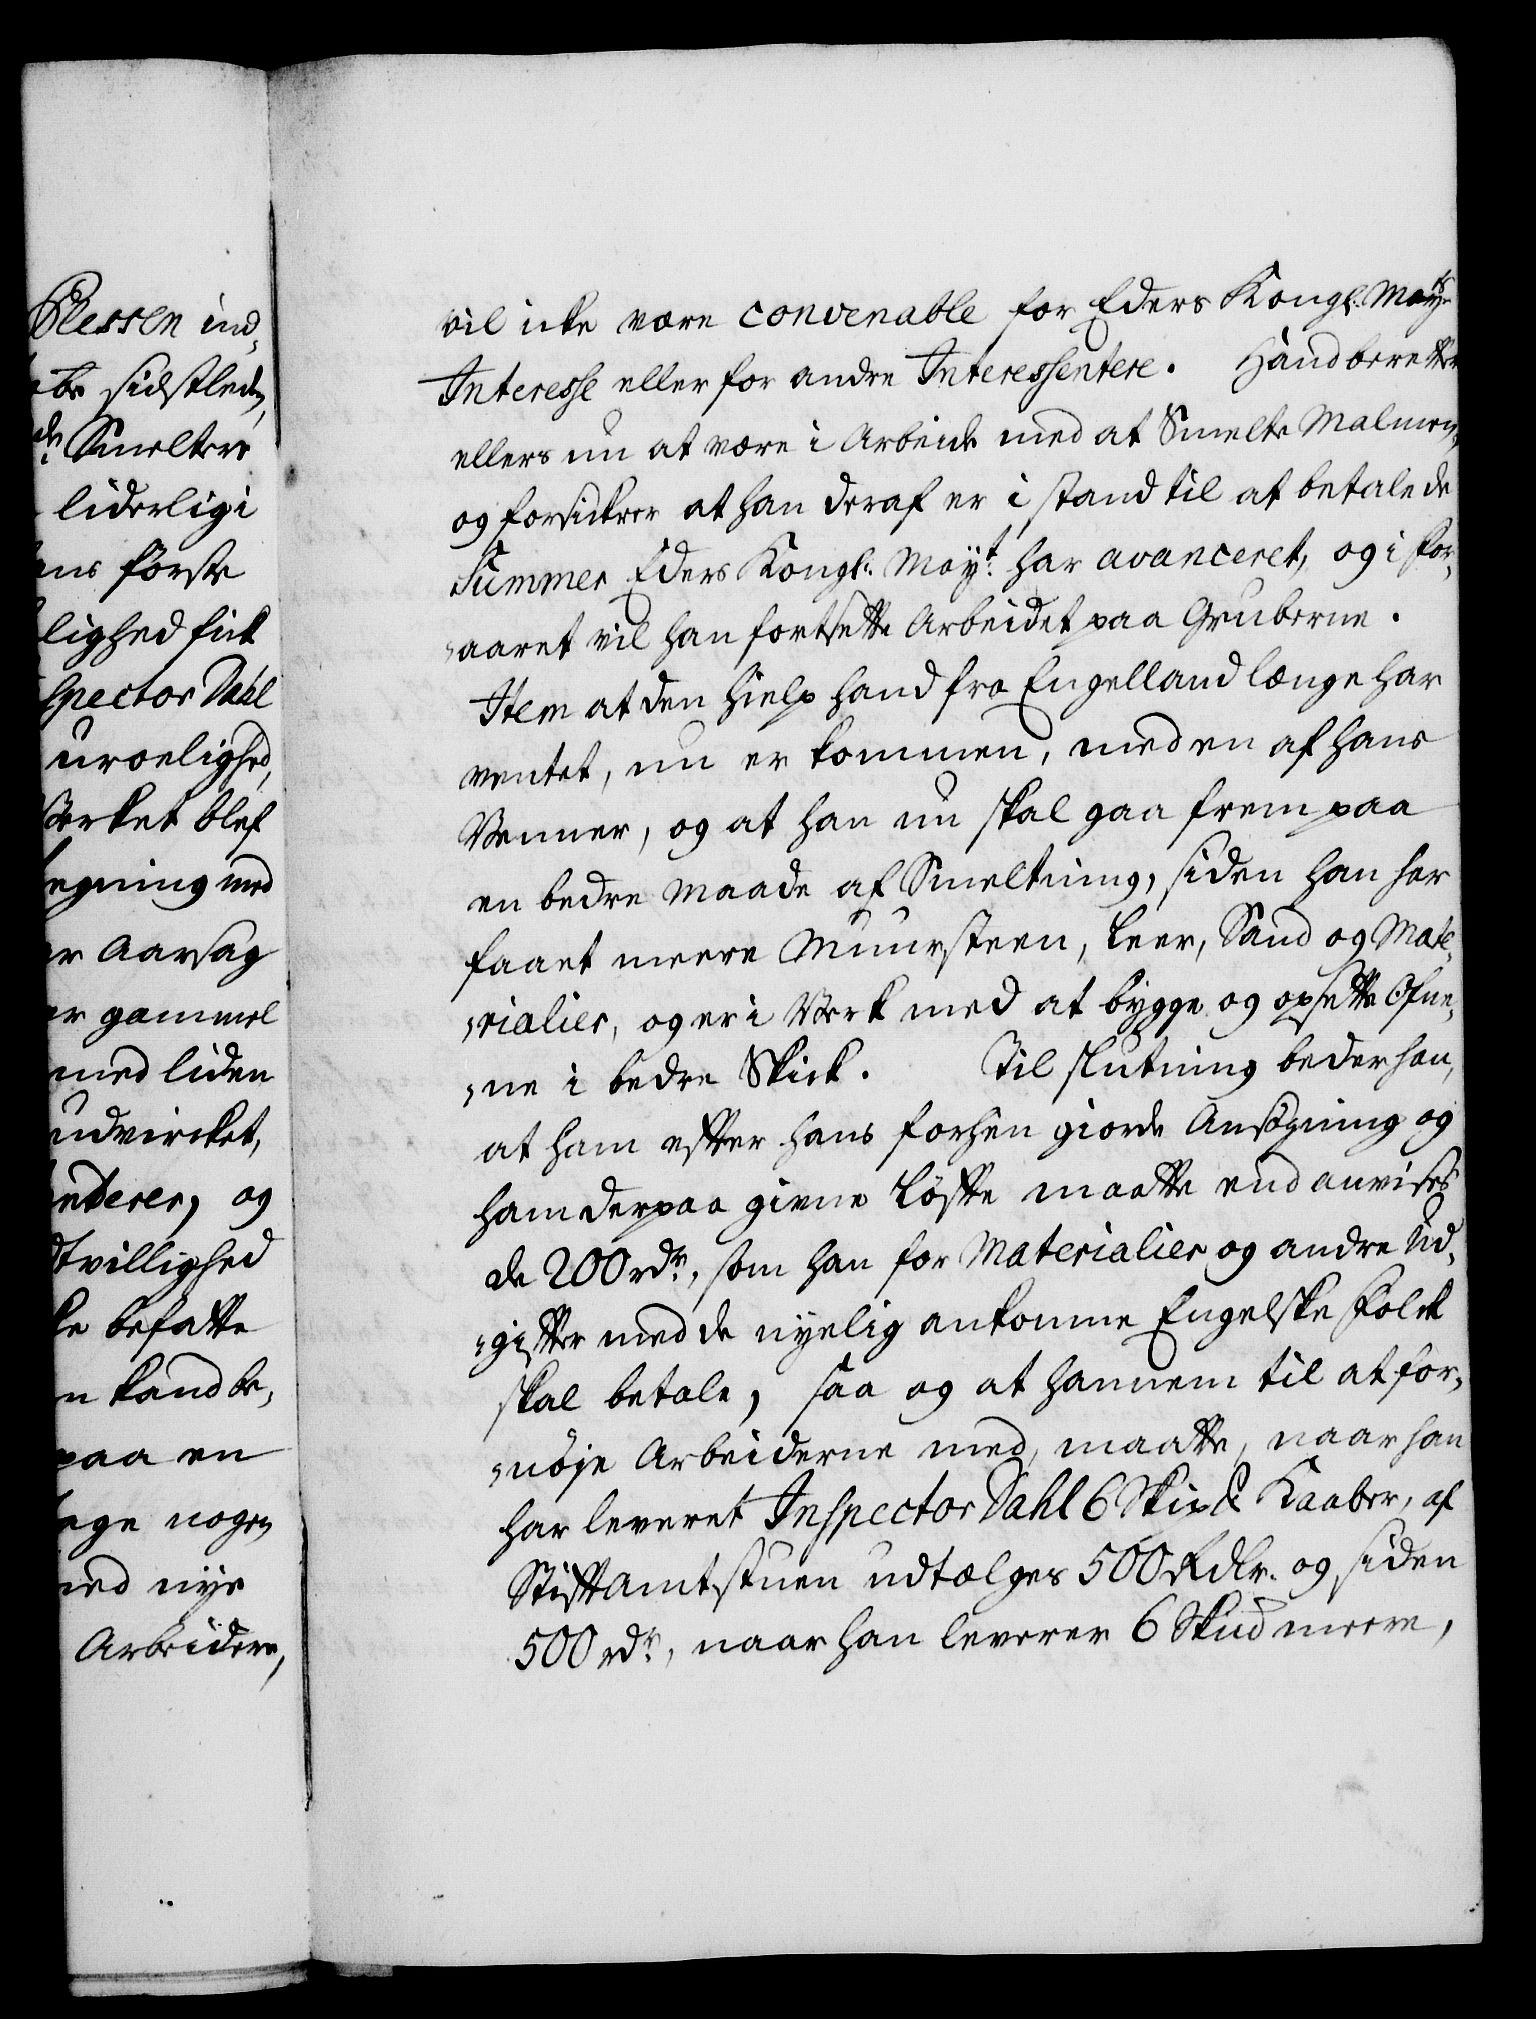 Plessen ind,
be sidstleden,
de Smeltere
liderlig i
ns förste
lighed fick
spector Dahl
uroelighed,
Verket blef
egning med
er Aarsag
er gammel
med liden
udvircket,
enderer, og
dtvillighed
ke befatte
n kand be,
paa en
age nogen
med nye
Arbeidere,
vil icke være convenable for Eders Kongl. Mayts
Interesse eller for andre Interessentere. Hånd beretter
ellers nu at være i Arbeide med at Smelte Malmen,
og forsickrer at han deraf er i stand til at betale de
Summer Eders Kongl: Mayt: har avanceret, og i For,
„aaret vil han fortsette Arbeidet paa Gruberne.
Item at den Hielp hand fra Engelland længe har
ventet, nu er kommen, med en af hans
Venner, og at han nu skal gaa frem paa
en bedre Maade af Smeltning, siden han har
faaet meere Muursteen, Leer, Sand og Mate,
„rialier, og er i Verk med at bygge og opsette Ofne,
„ne i bedre Skick. Til slutning beder han,
at ham efter hans forhen giorde Ansøgning og
ham derpaa givne Løfte maatte end anvises
de 200 rdr, som han for Materialier og andre Ud,
„gifter med de nyelig ankomne Engelske Folck
skal betale, saa og at hannem til at for,
„nöje Arbeiderne med, maatte, naar han
har leveret Inspector Dahl 6 Skip℔ Kaaber, af
Stiftamtstuen udtælges 500 Rdlr. og siden
500 rdr, naar han leverer 6 Skud meere,